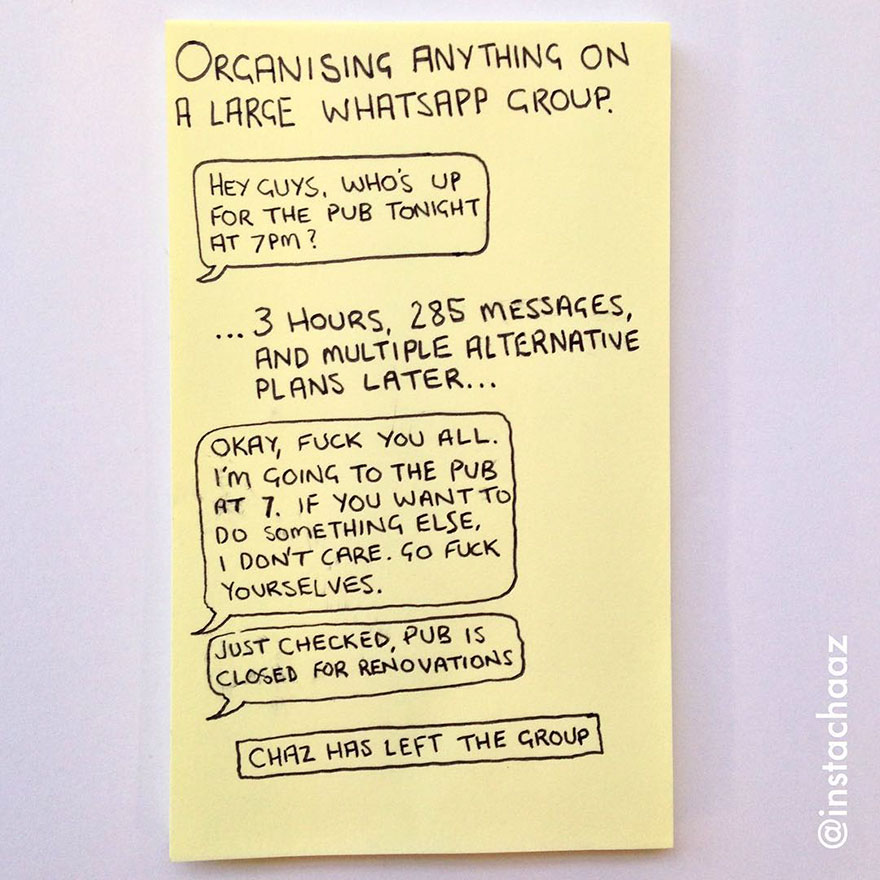 ORGANISING ANYTHING ON
A LARGE WHATSAPP GROUP.
HEY GUYS, WHO'S UP
FOR THE PUB TONIGHT
AT 7PM?
...3 HOURS, 285 MESSAGES,
AND MULTIPLE ALTERNATIVE
PLANS LATER...
OKAY, FUCK YOU ALL.
I'M GOING TO THE PUB
AT 7. IF YOU WANT TO
DO SOMETHING ELSE,
I DON'T CARE. GO FUCK
YOURSELVES.
JUST CHECKED, PUB IS
CLOSED FOR RENOVATIONS
CHAZ HAS LEFT THE GROUP
@instachaaz